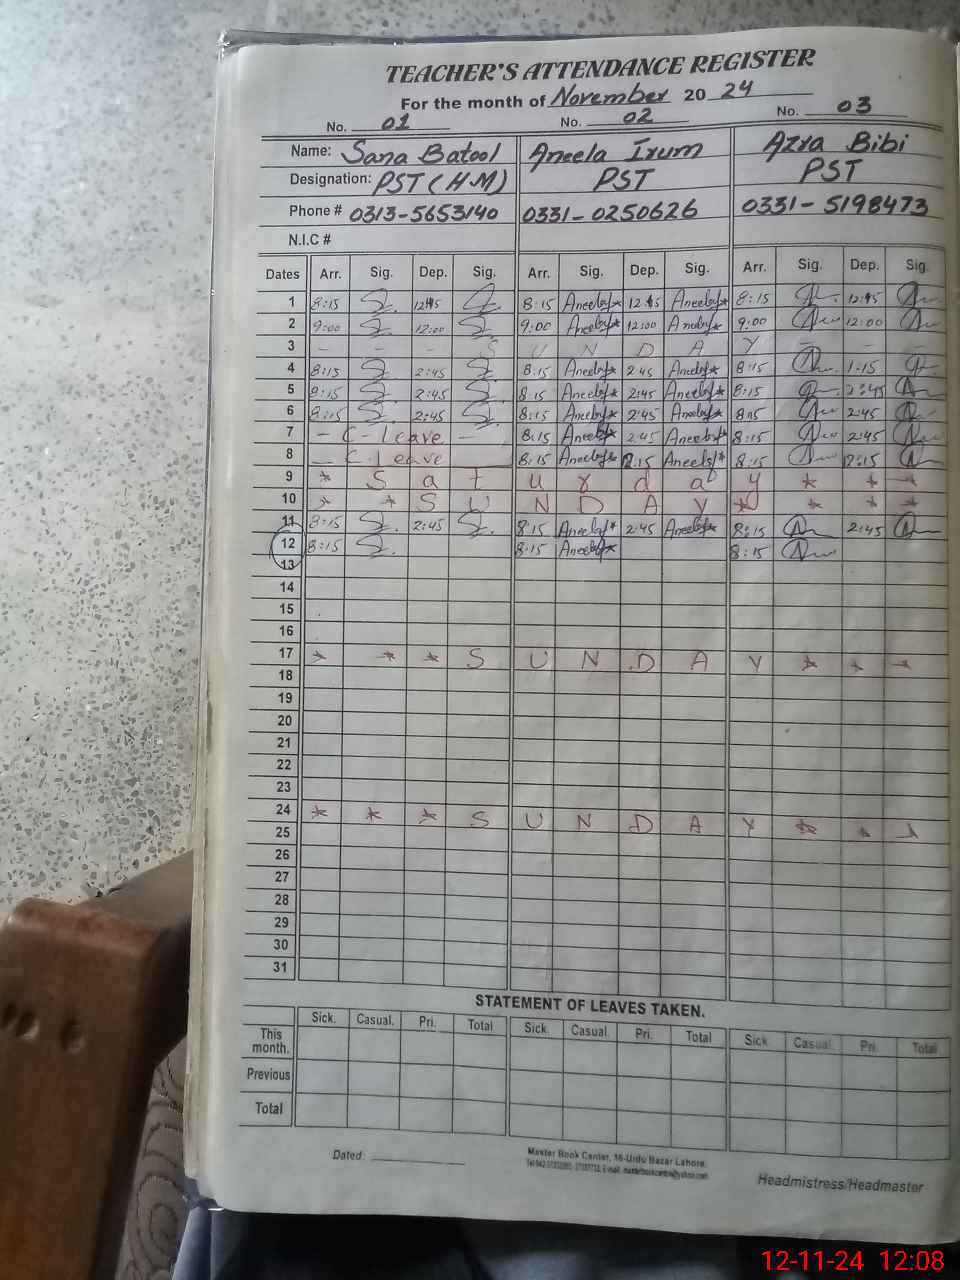 TEACHER'S ATTENDANCE REGISTER
For the month of November 20 24
No. 01 No. 02 No. 03
Name: Sana Batool Aneela Irum Azra Bibi
Designation: PST (H.M) PST PST
Phone # 0313-5653140 0331-0250626 0331-5198473
N.I.C #
Dates Arr. Sig. Dep. Sig. Arr. Sig. Dep. Sig. Arr. Sig. Dep. Sig.
1 8:15 12:45 8:15 12:45 8:15 12:45
2 9:00 12:00 9:00 12:00 9:00 12:00
3 - - - S U N D A Y - - -
4 8:15 2:45 8:15 2:45 8:15 1:15
5 8:15 2:45 8:15 2:45 8:15 2:45
6 8:15 2:45 8:15 2:45 8:15 2:45
7 - C-Leave - 8:15 2:45 8:15 2:45
8 - C-Leave 8:15 12:15 8:15 12:15
9 * S a t u r d a y * * *
10 * * S U N D A Y * * *
11 8:15 2:45 8:15 2:45 8:15 2:45
12 8:15 8:15 8:15
13
14
15
16
17 * * * S U N D A Y * * *
18
19
20
21
22
23
24 * * * S U N D A Y * * *
25
26
27
28
29
30
31
STATEMENT OF LEAVES TAKEN.
Sick. Casual. Pri. Total Sick. Casual. Pri. Total Sick Casual. Pri. Total
This month.
Previous
Total
Dated:
Master Book Center, 16-Urdu Bazar Lahore.
Headmistress/Headmaster
12-11-24 12:08